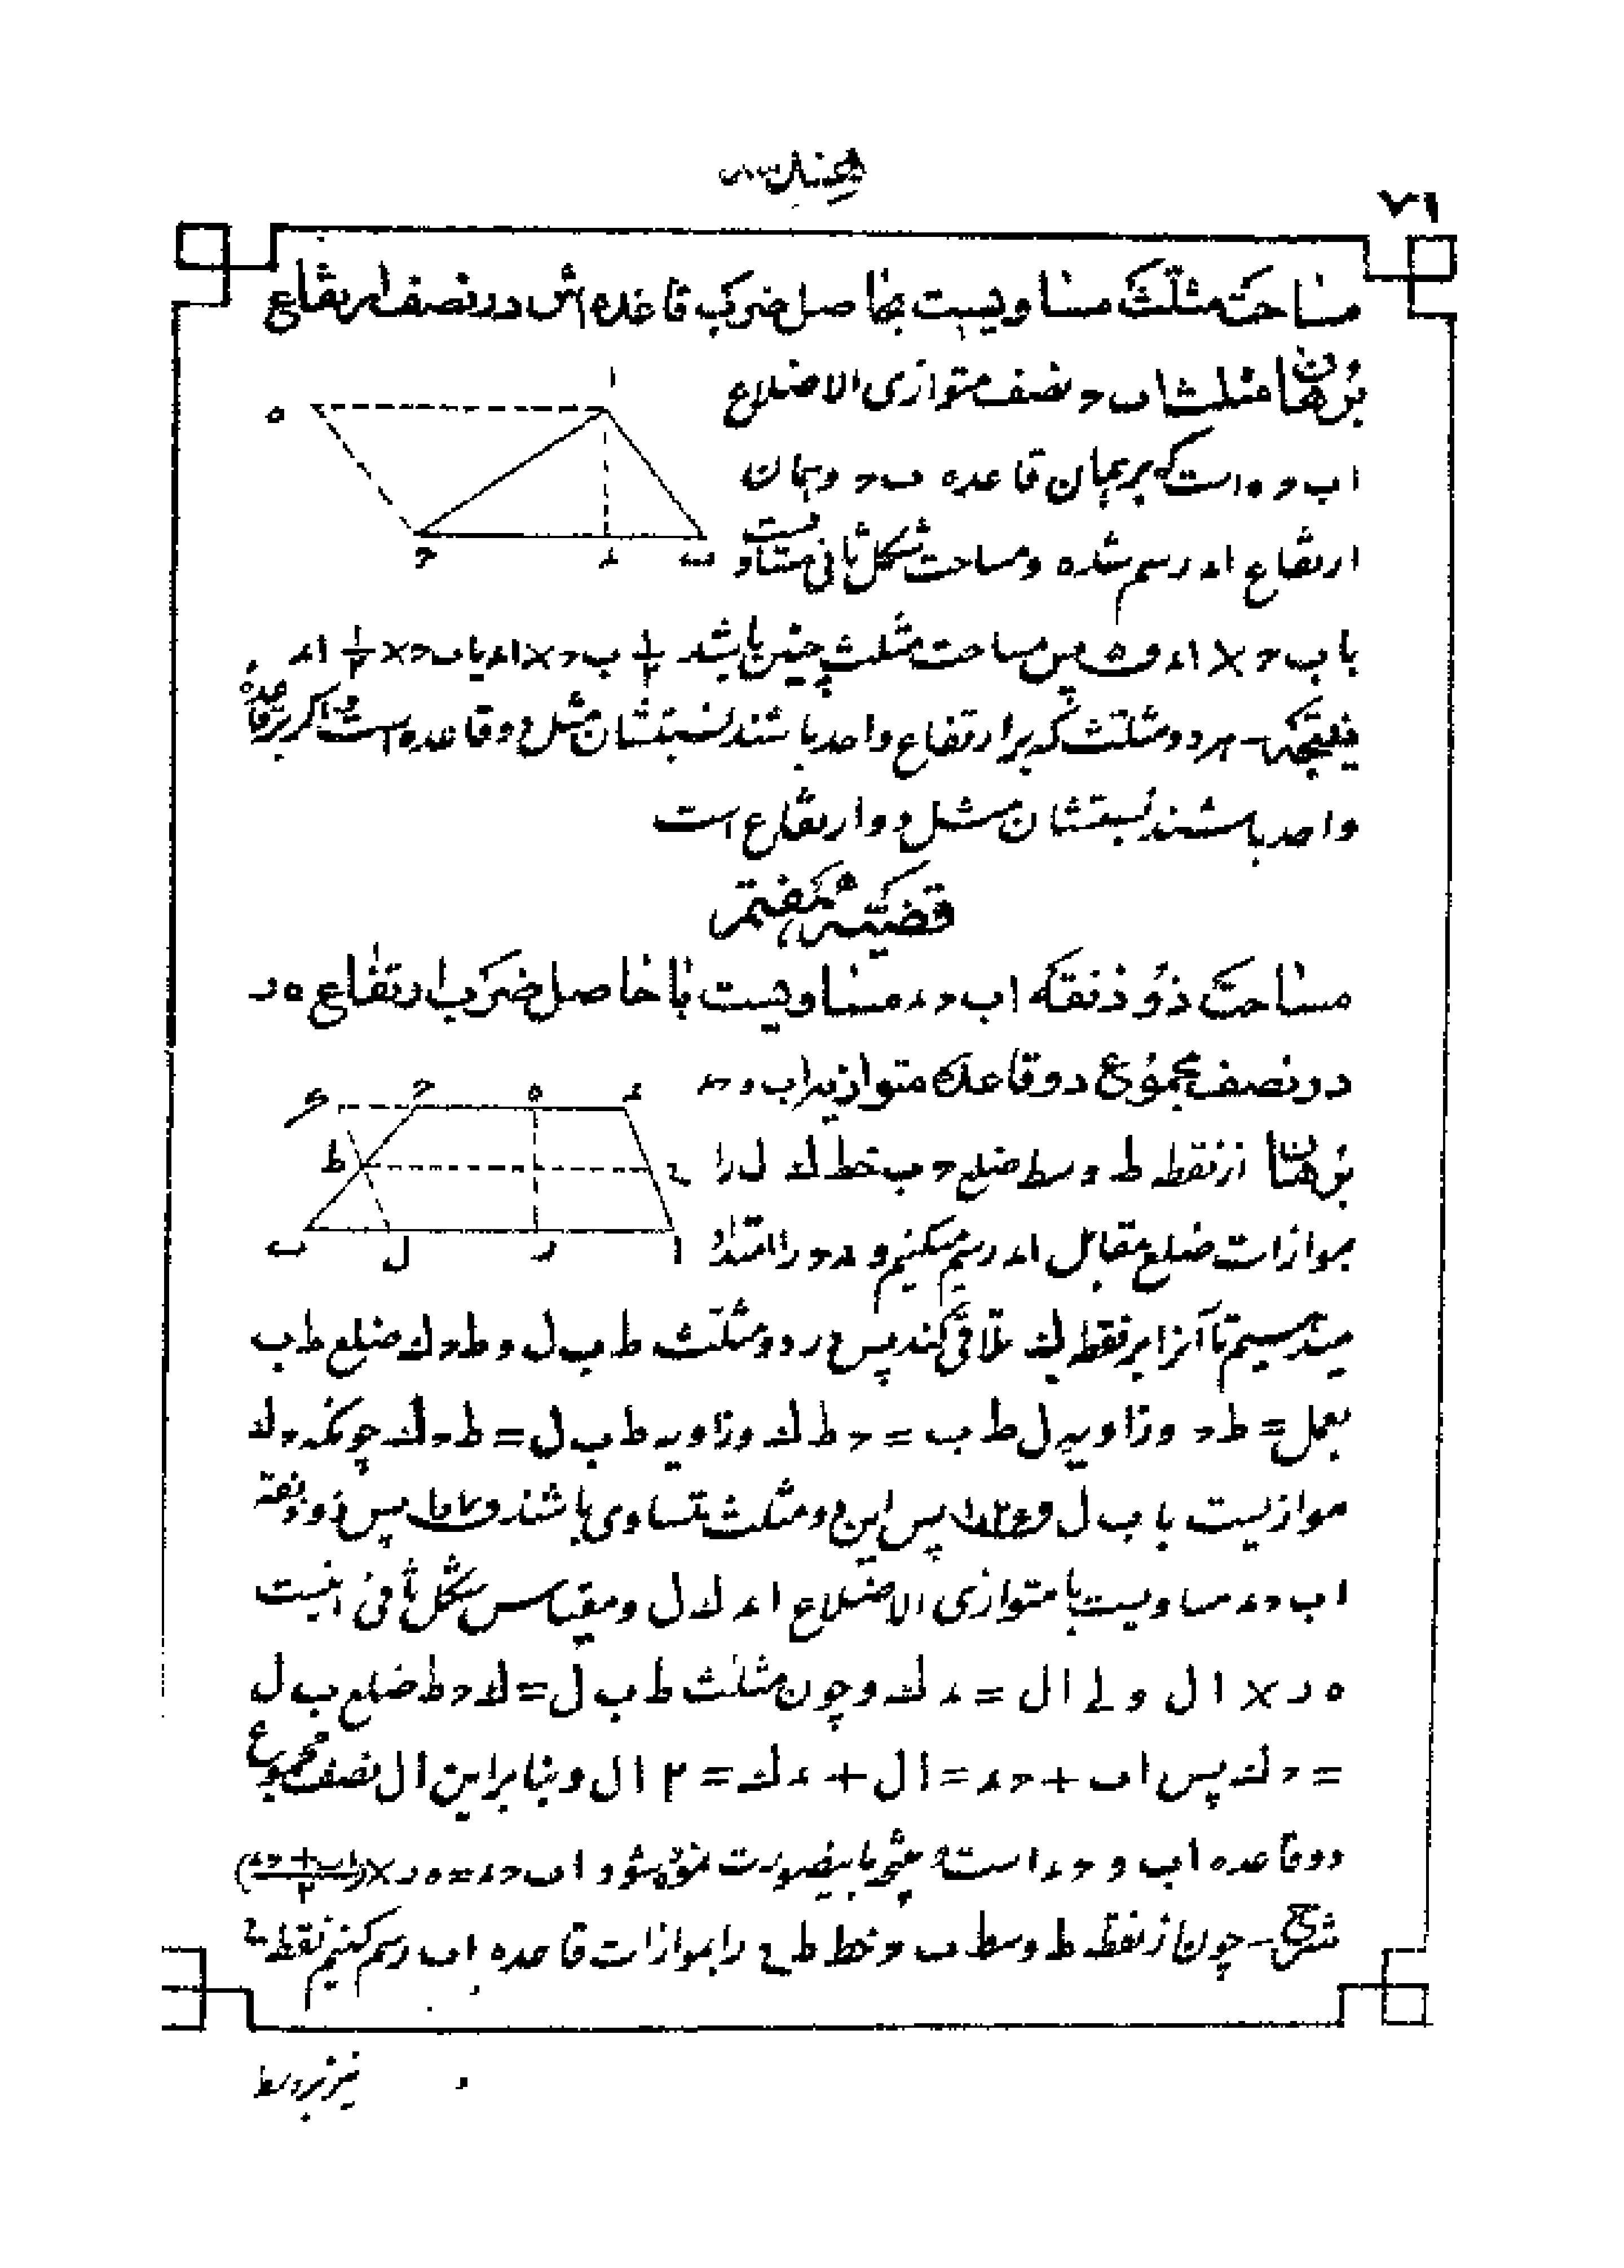 ۷۶
مساحت مثلث مساویست بحاصل ضرب قاعده اش در نصف ارتفاع
برهان مثلث اب ح نصف متوازی الاضلاع
اب ح ه است که بر همان قاعده ب ح و همان
ارتفاع اء رسم شده و مساحت شکل ثانی مساویست
با ب ح × اء پس مساحت مثلث چنین باشد ½ ب ح × اء یا ب ح × ½ اء
نتیجه - هر دو مثلث که بر ارتفاع واحد باشند نسبتشان مثل دو قاعده است و اگر بر قاعدهٔ
واحد باشند نسبتشان مثل دو ارتفاع است
قضیه هفتم
مساحت ذو ذنقه اب ح ء مساویست با حاصل ضرب ارتفاع ه ر
در نصف مجموع دو قاعده متوازیه اب و ح ء
برهان از نقطه ط وسط ضلع ح ب خط ك ل را
بموازات ضلع مقابل اء رسم میکنیم و ء ح را امتداد
میدهیم تا آنرا بر نقطه ك تلاقی کند پس در دو مثلث ط ب ل و ط ح ك ضلع ط ب
بعمل = ط ح و زاویه ل ط ب = ح ط ك و زاویه ط ب ل = ط ح ك چونکه ح ك
موازیست با ب ل پس این دو مثلث متساوی باشند پس ذو ذنقه
اب ح ء مساویست با متوازی الاضلاع اء ك ل و مقیاس شکل ثانی اینست
ه ر × ا ل ولی ا ل = ء ك و چون مثلث ط ب ل = ك ح ط ضلع ب ل
= ح ك پس اب + ح ء = ا ل + ء ك = ۲ ا ل و بنا براین ا ل نصف مجموع
دو قاعده اب و ح ء است باینصورت شود اب ح ء = ه ر × (اب + ح ء / ۲)
شرح - چون از نقطه ط وسط ب ح خط ط ی را بموازات قاعده اب رسم کنیم نقطه ی
نیز بر وسط